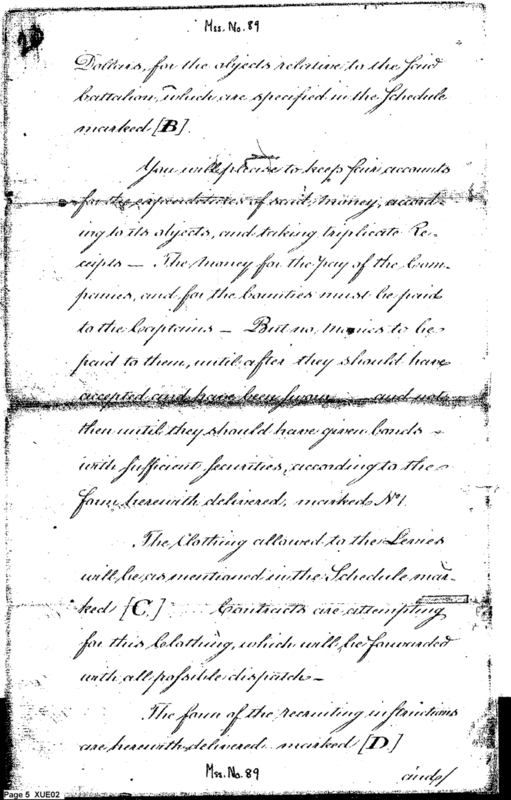 Mss. No. 89
Dollars, for the objects relative to the said
battalion, which are specified in the Schedule
marked [B].
You will please to keep fair accounts
for the expenditures of said money, accord-
ing to its objects, and taking triplicate Re-
ceipts — The money for the pay of the Com-
panies, and for the bounties must be paid
to the Captains — But no monies to be
paid to them, until after they should have
accepted and have been sworn — and not
then until they should have given bonds –
with sufficient securities, according to the
form herewith delivered, marked No 1.
The Clothing allowed to the Levies
will be as mentioned in the Schedule mar-
ked [C.] Contracts are attempting
for this Clothing, which will be forwarded
with all possible dispatch –
The form of the recruiting instructions
are herewith delivered marked [D.]
Mss. No. 89
and/
Page 5 XUE02